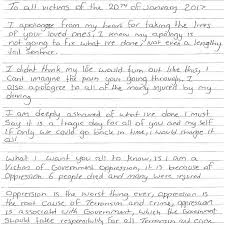 To all victims of the 20TH of January 2017
I apologise from my heart for taking the lives
of your loved ones, I know my apology is
not going to fix what ive done, Nor even a lengthy
Jail Sentence.
I didnt think my life would turn out like this, I
Cant imagine the pain your going through, I
also apologise to all of the many injured by my
driving
I am deeply ashamed of what ive done, I must
Say it is a tragic day for all of you and my self
If only we could go back in time, I would change it
all.
What I want you all to know, is I am a
Victim of Government oppression, it is because of
Oppression 6 people died and many were injured
Oppression is the worst thing ever, oppression is
the root cause of Terrorism and crime, oppression
is associated with Government, which the Government
should take responsibility for all Terrorism and crime